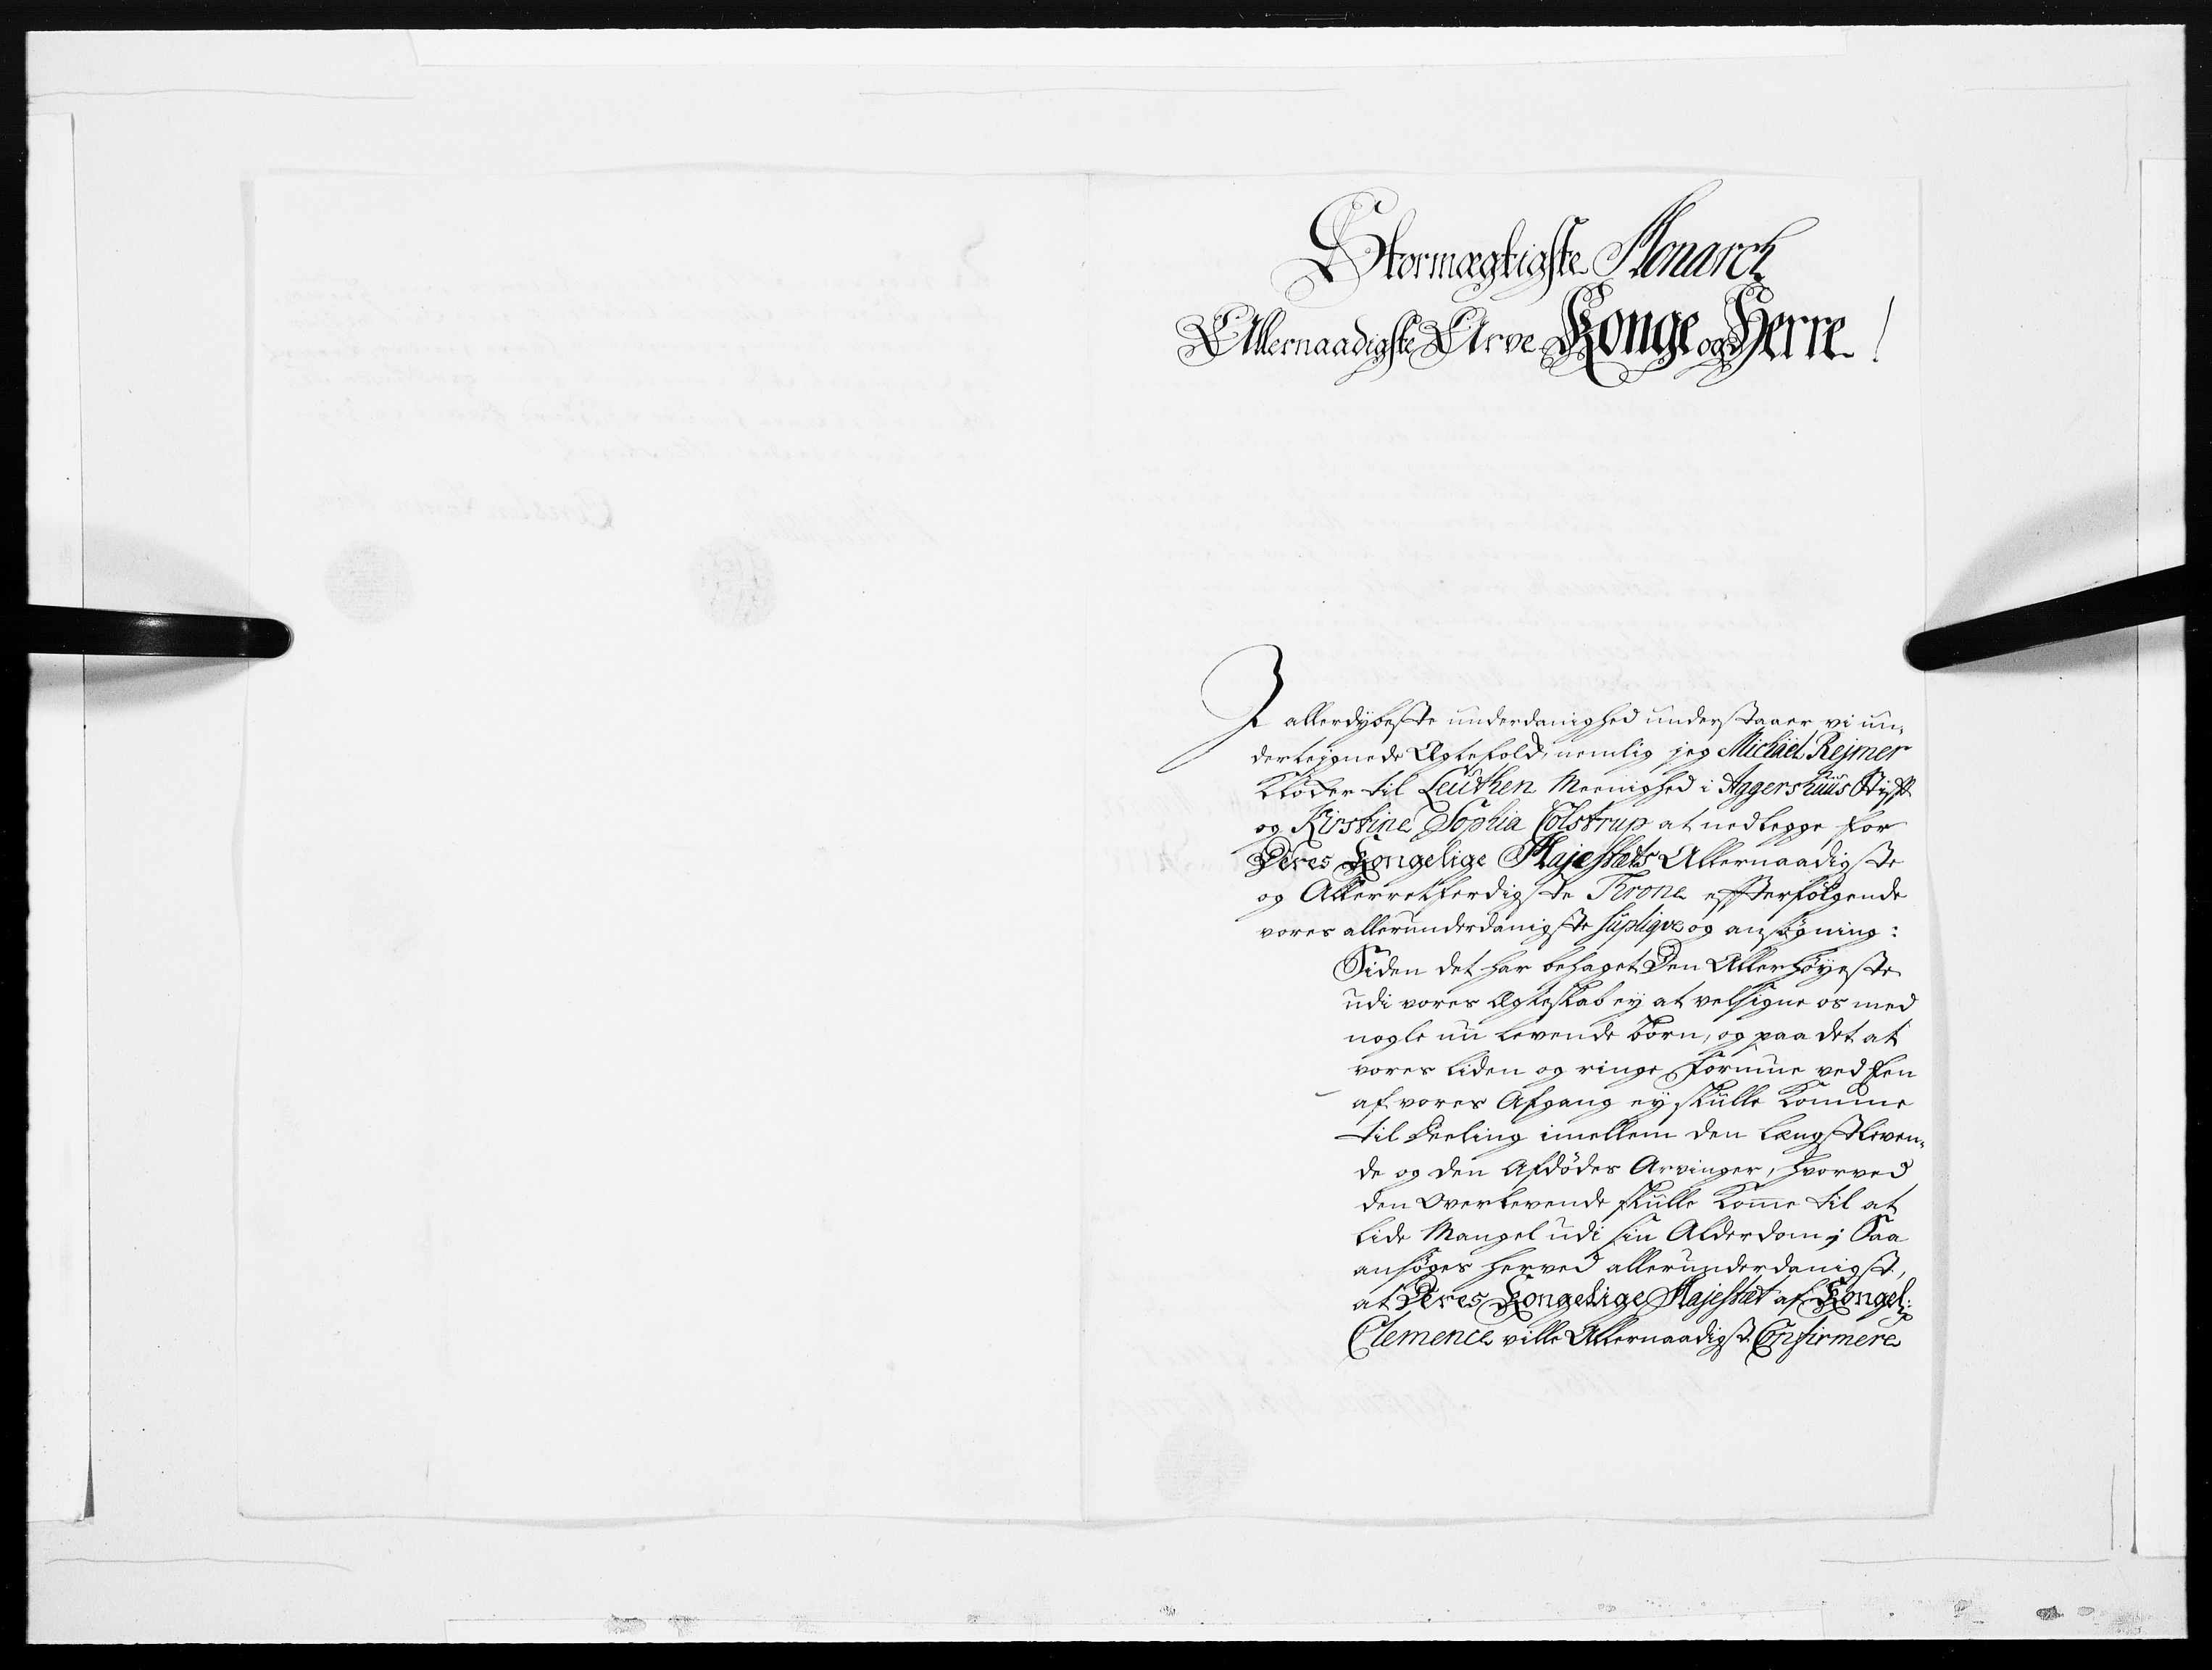 Stormægtigste Monarch
Allernaadigste Arve Konge og Herre!
I allerdybeste underdanighed understaaer vi un-
dertejgnede Ægtefolk, nemlig jeg Michäel Rejmer
Klocker til Leuthen Meenighed i Aggershuus Stift
og Kirstine Sophia Colstrup at nedlegge for
Deres Kongelige Majestæts Allernaadigste
og Allerretferdigste Trone efterfølgende
vores allerunderdanigste supliqve og ansøgning:
Siden det har behaget Den Allerhøyeste
udi vores Ægteskab ey at velsigne os med
nogle nu levende børn, og paa det at
vores liden og ringe Formue ved een
af vores Afgang ey skulle komme
til deeling imellem den længstleven-
de og den Afdødes Arvinger, hvorved
den Overlevende skulle kom̄e til at
lide Mangel udi sin Alderdom; Saa
ansøges herved allerunderdanigst,
at Deres Kongelige Majestæt af Kongel:
Clemence ville Allernaadigst Confirmere